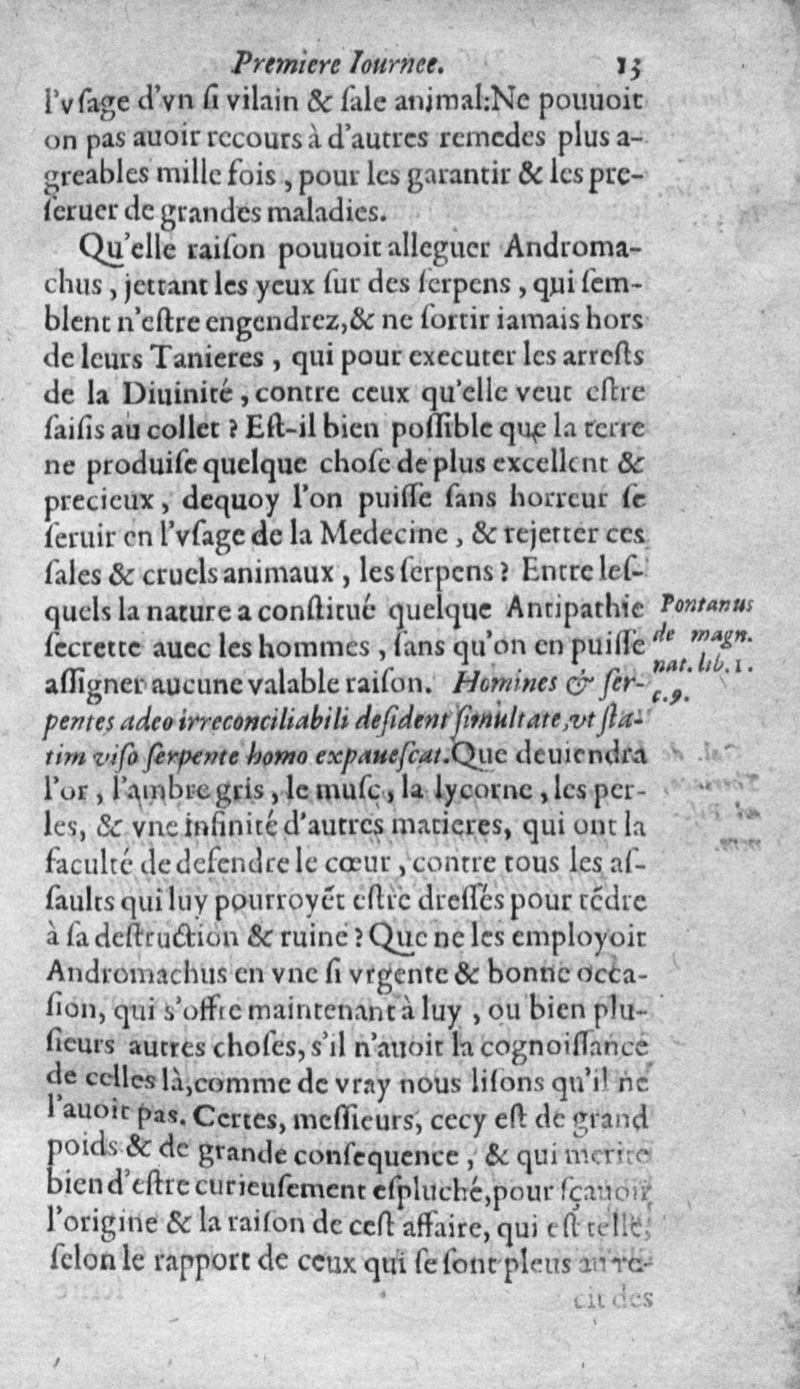 Premiere Iournee. 13
l'vſage d'vn ſi vilain & ſale animal:Ne pouuoit
on pas auoir recours à d'autres remedes plus a-
greables mille fois, pour les garantir & les pre-
ſeruer de grandes maladies.
Qu'elle raiſon pouuoit alleguer Androma-
chus, jettant les yeux ſur des ſerpens, qui ſem-
blent n'eſtre engendrez,& ne ſortir iamais hors
de leurs Tanieres, qui pour executer les arreſts
de la Diuinité, contre ceux qu'elle veut eſtre
ſaiſis au collet ? Eſt-il bien poſſible que la terre
ne produiſe quelque choſe de plus excellent &
precieux, dequoy l'on puiſſe ſans horreur ſe
ſeruir en l'vſage de la Medecine, & rejetter ces
ſales & cruels animaux, les ſerpens ? Entre leſ-
quels la nature a conſtitué quelque Antipathie
ſecrette auec les hommes, ſans qu'on en puiſſe
aſſigner aucune valable raiſon. Homines & ſer-
pentes adeo irreconciliabili deſident ſimultate,vt ſta-
tim viſo ſerpente homo expaueſcat.Que deuiendra
l'or, l'ambre gris, le muſc, la lycorne, les per-
les, & vne infinité d'autres matieres, qui ont la
faculté de defendre le cœur, contre tous les aſ-
ſaults qui luy pourroyẽt eſtre dreſſés pour tẽdre
à ſa deſtruction & ruine ? Que ne les employoit
Andromachus en vne ſi vrgente & bonne occa-
ſion, qui s'offre maintenant à luy, ou bien plu-
ſieurs autres choſes, s'il n'auoit la cognoiſſance
de celles là,comme de vray nous liſons qu'il ne
l'auoit pas. Certes, meſſieurs, cecy eſt de grand
poids & de grande conſequence, & qui merite
bien d'eſtre curieuſement eſpluché,pour ſçauoir
l'origine & la raiſon de ceſt affaire, qui eſt telle,
ſelon le rapport de ceux qui ſe ſont pleus au re-
cit des
Pontanus
de magn.
nat. lib. 1.
c.9.